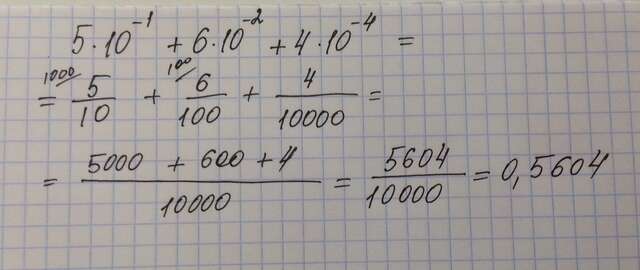 5·10⁻¹ + 6·10⁻² + 4·10⁻⁴ =
= ¹⁰⁰⁰⁄ 5/10 + ¹⁰⁰⁄ 6/100 + 4/10000 =
= (5000 + 600 + 4)/10000 = 5604/10000 = 0,5604